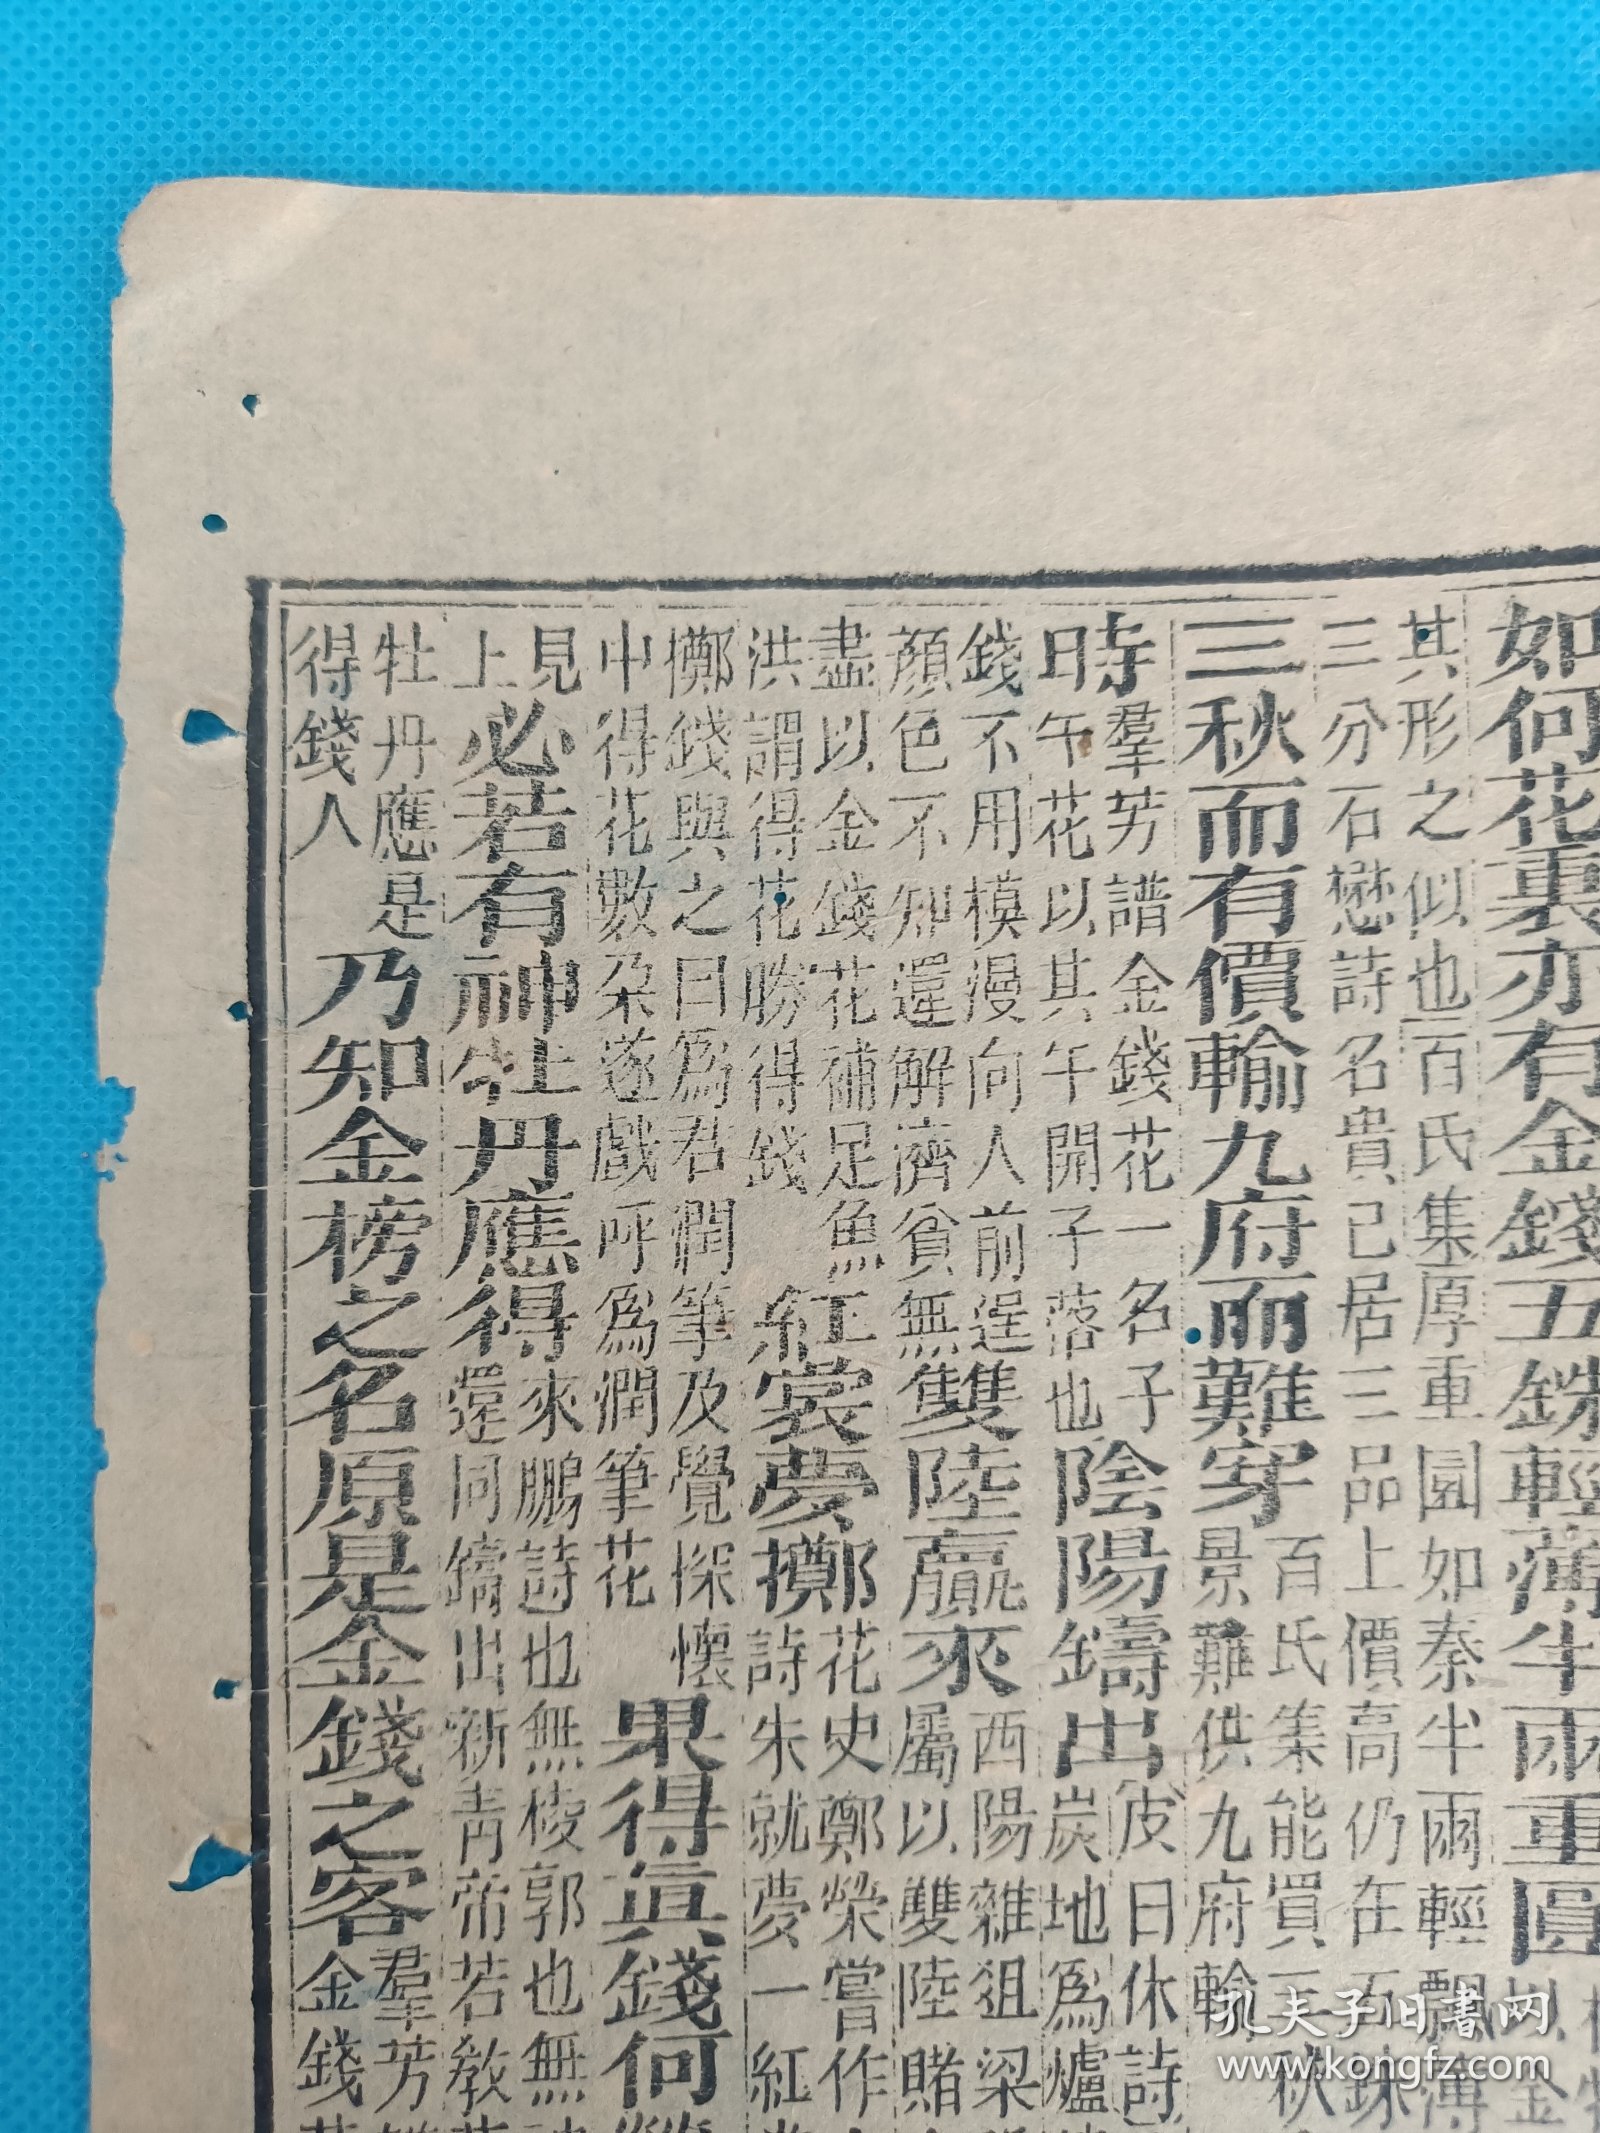 如何花裏亦有金錢五銖輕薄半兩重圓
其形之似也百氏集厚重園如秦半兩輕飄薄
三分石懋詩名貴已居三品上價高仍在五銖
三秋而有價輸九府而難穿
百氏集能買三秋
景難供九府輸
時
羣芳譜金錢花一名子
午花以其午開子落也
陰陽鑄出
皮日休詩
炭地爲爐
錢不用模漫向人前逞
顔色不知還解濟貧無
雙陸贏來
西陽雜俎梁
屬以雙陸賭
盡以金錢花補足魚
洪謂得花勝得錢
紅裳夢擲
花史鄭榮嘗作
詩未就夢一紅
擲錢與之曰爲君潤筆及覺探懷
中得花數朶遂戲呼爲潤筆花
果得眞錢何
見
上
必若有神牡丹應得
來鵬詩也無棱郭也無
還同鑄出新青帝若教
牡丹應是
得錢人
乃知金榜之名原是金錢之客
羣芳
金錢
孔夫子旧書网
www.kongfz.com